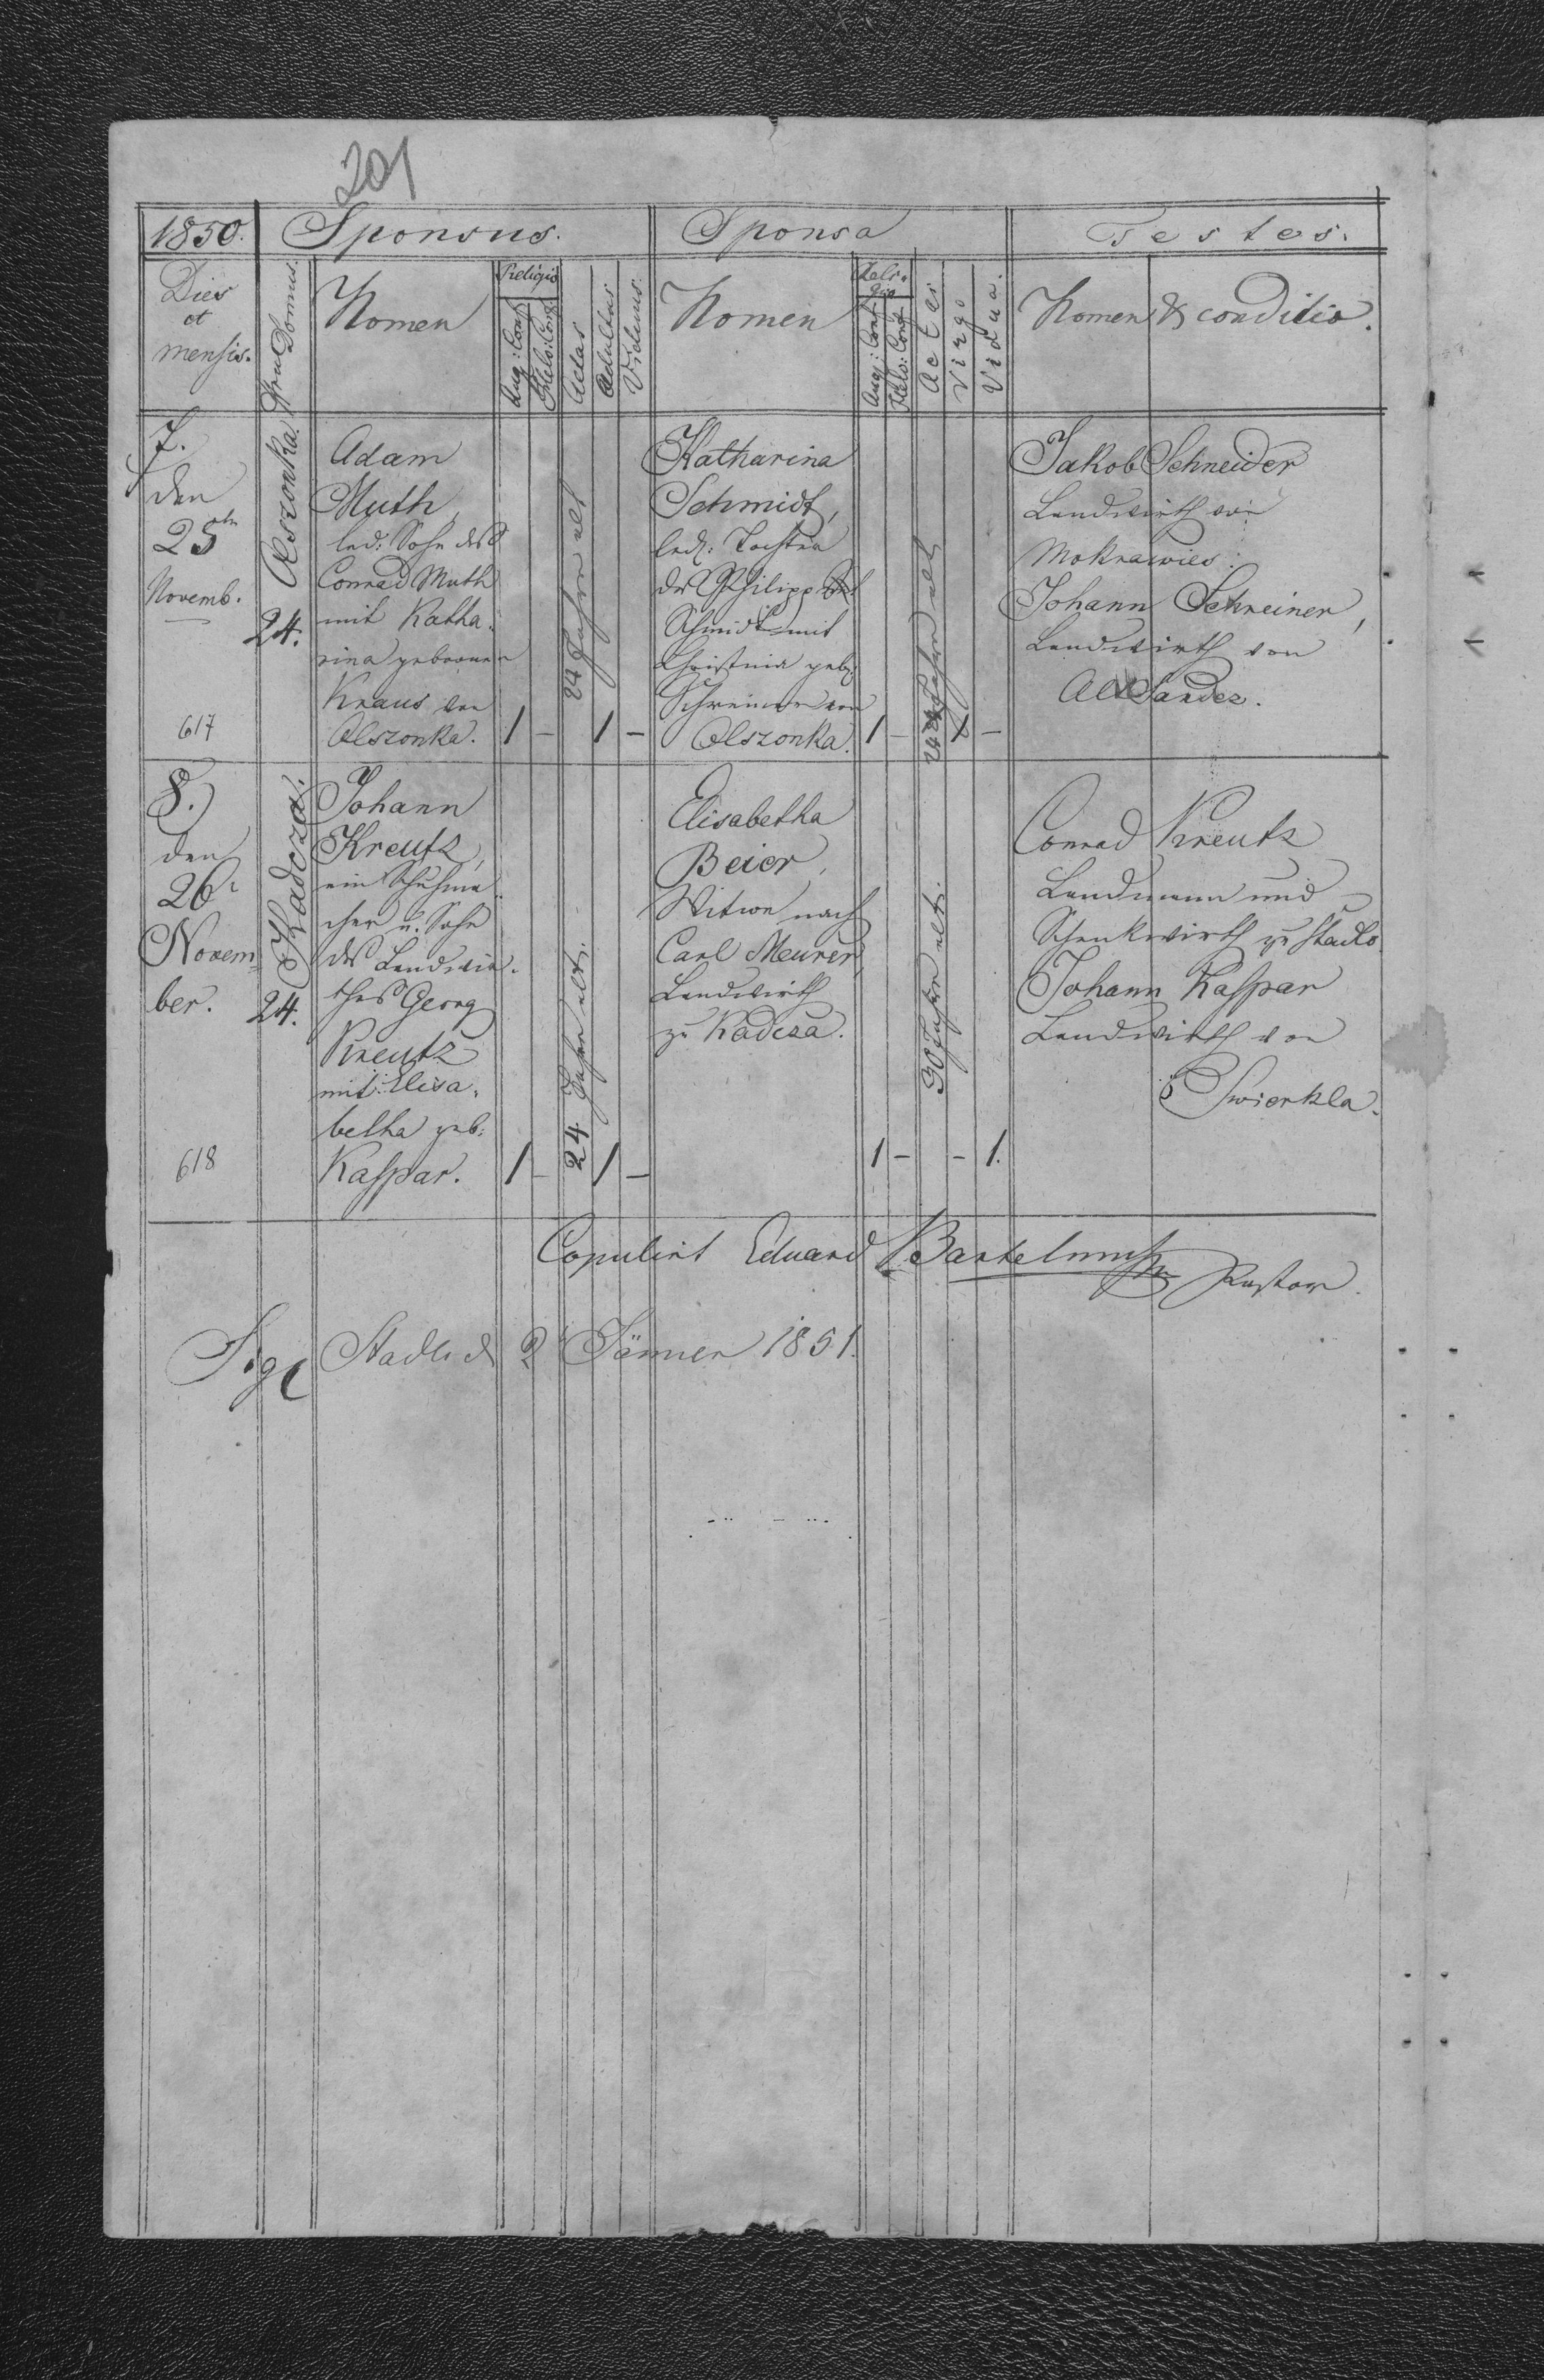 201
1850. Sponsus. Sponsa Testes.
Dies
et
mensis.
Domus.
Nomen
Religio
Aug: Conf
Helv: Conf
Aetas
Adultus
Viduus.
Nomen
Reli-
gio
Aug: Conf
Helv: Conf
Aetas
Virgo
Vidua.
Nomen & conditio.
7.
den
25ten
Novemb.
617
Olszonka.
24.
Adam
Muth,
led: Sohn des
Conrad Muth
mit Katha-
rina geborenen
Kraus von
Olszonka.
1 -
24 Jahre alt
1 -
Katharina
Schmidt,
led: Tochter
des Philipp
Schmidt mit
Christina geb:
Schreiner von
Olszonka.
1 -
24 Jahre alt
1 -
Jakob Schneider
Landwirth von
Mokrawies.
Johann Schreiner,
Landwirth von
Alt Sandez.
8.)
den
26t
Novem-
ber.
618
Kadcza.
24.
Johann
Kreutz,
ein Schuhma-
cher u. Sohn
des Landwir-
thes Georg
Kreutz
mit Elisa-
betha geb:
Kaspar.
1 -
24 Jahre alt.
1 -
Elisabetha
Beier,
Witwe nach
Carl Meurer,
Landwirth
zu Kadcza.
1 -
30 Jahre alt.
- 1.
Conrad Kreutz
Landmann und
Schenkwirth zu Stadlo
Johann Kaspar
Landwirth von
Swierkla.
Copulirt Eduard Bartelmuss Pastor.
Sigl Stadlo d 2t Jänner 1851.